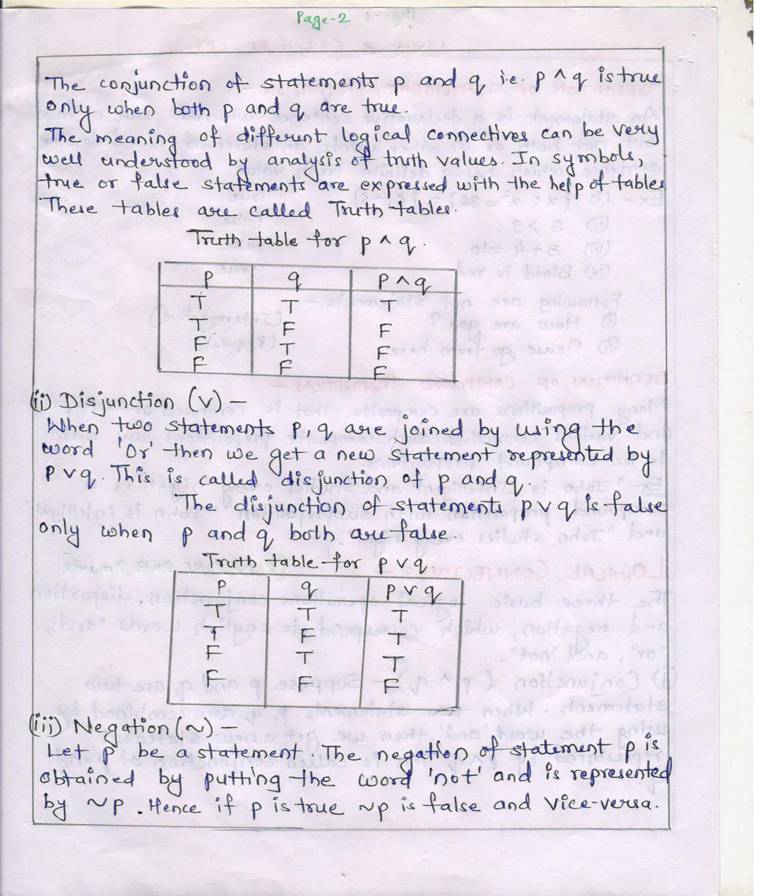 Page-2
The conjunction of statements p and q i.e. p ∧ q is true
only when both p and q are true.
The meaning of different logical connectives can be very
well understood by analysis of truth values. In symbols,
true or false statements are expressed with the help of tables
These tables are called Truth-tables.
Truth table for p ∧ q.
p q p ∧ q
T T T
T F F
F T F
F F F
(ii) Disjunction (∨) –
When two statements p, q are joined by using the
word 'Or' then we get a new statement represented by
p ∨ q. This is called disjunction of p and q.
The disjunction of statements p ∨ q is false
only when p and q both are false
Truth table for p ∨ q
p q p ∨ q
T T T
T F T
F T T
F F F
(iii) Negation (~) –
Let p be a statement. The negation of statement p is
obtained by putting the word 'not' and is represented
by ~p. Hence if p is true ~p is false and vice-versa.